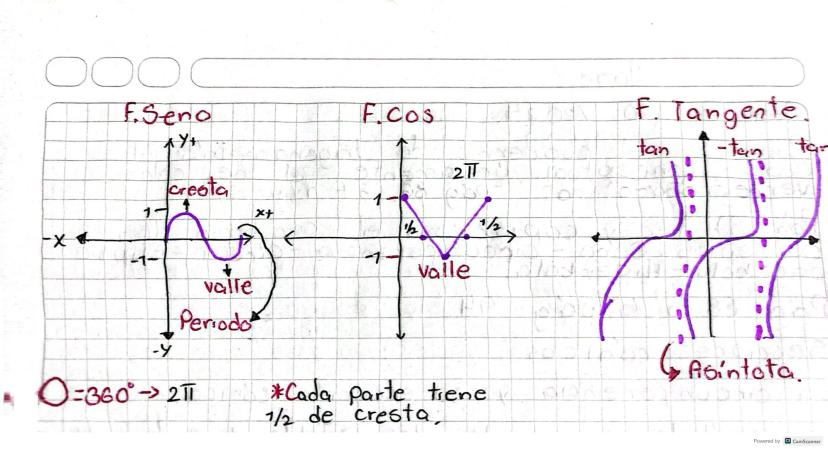 F. Seno
F. Cos
F. Tangente.
Y+
tan
-tan
tan
cresta
2π
1
x+
1
1/2
1/2
-x
-1
-1
valle
valle
Periodo
-y
Asíntota.
O=360° → 2π
*Cada parte tiene
1/2 de cresta.
Powered by CamScanner